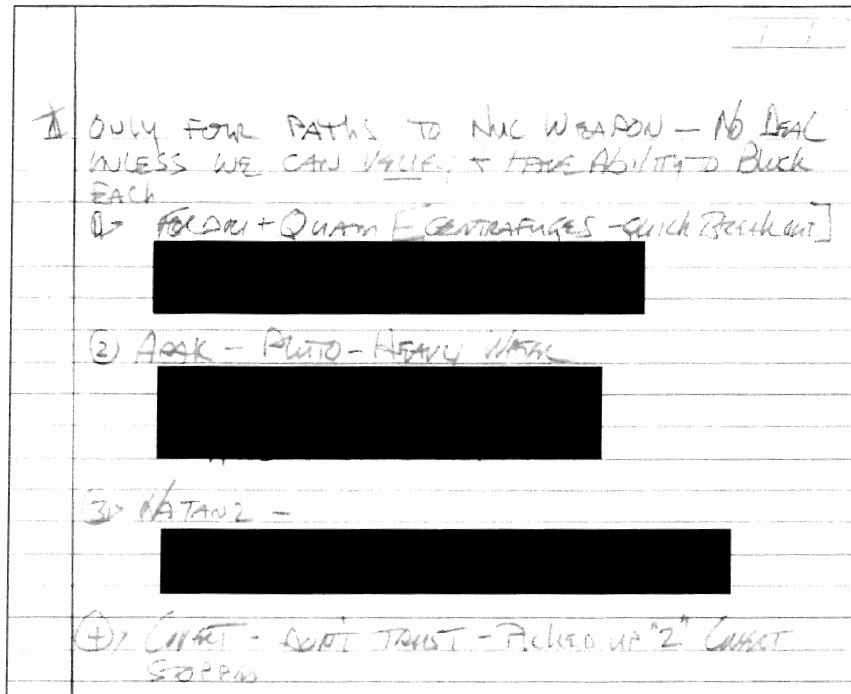 I ONLY FOUR PATHS TO NUC WEAPON — NO DEAL
UNLESS WE CAN VERIFY + HAVE ABILITY TO BLOCK
EACH
1> FORDOW + QUAM CENTRAFUGES - QUICK BREAKOUT]
② ARAK - PLUTO - HEAVY WATER
3> NATANZ -
④> COVERT - DON'T TRUST - PICKED UP "2" COVERT